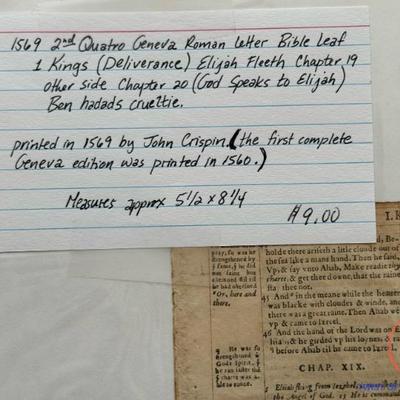 1569 2nd Quatro Geneva Roman letter Bible Leaf
1 Kings (Deliverance) Elijah Fleeth Chapter 19
other side Chapter 20 (God Speaks to Elijah)
Ben hadads crueltie.
printed in 1569 by John Crispin. (the first complete
Geneva edition was printed in 1560.)
Measures approx 5 1/2 x 8 1/4
$9.00
I. K
holde there ariseth a litle cloude out of
the sea like a mans hand. Then he said,
Vp, & say vnto Ahab, Make readie thy
charet, & get thee downe, that the raine
stay thee not.
45 And in the meane while the heauen
was blacke with cloudes & winde, and
there was a great raine. Then Ahab we
vp & came to Izreel.
46 And the hand of the Lord was on E
liah & he girded vp his loynes, & ra
before Ahab til he came to Izreel.
CHAP. XIX.
the Angel of God.
"Or, here and
there.
g He was so
strengthened